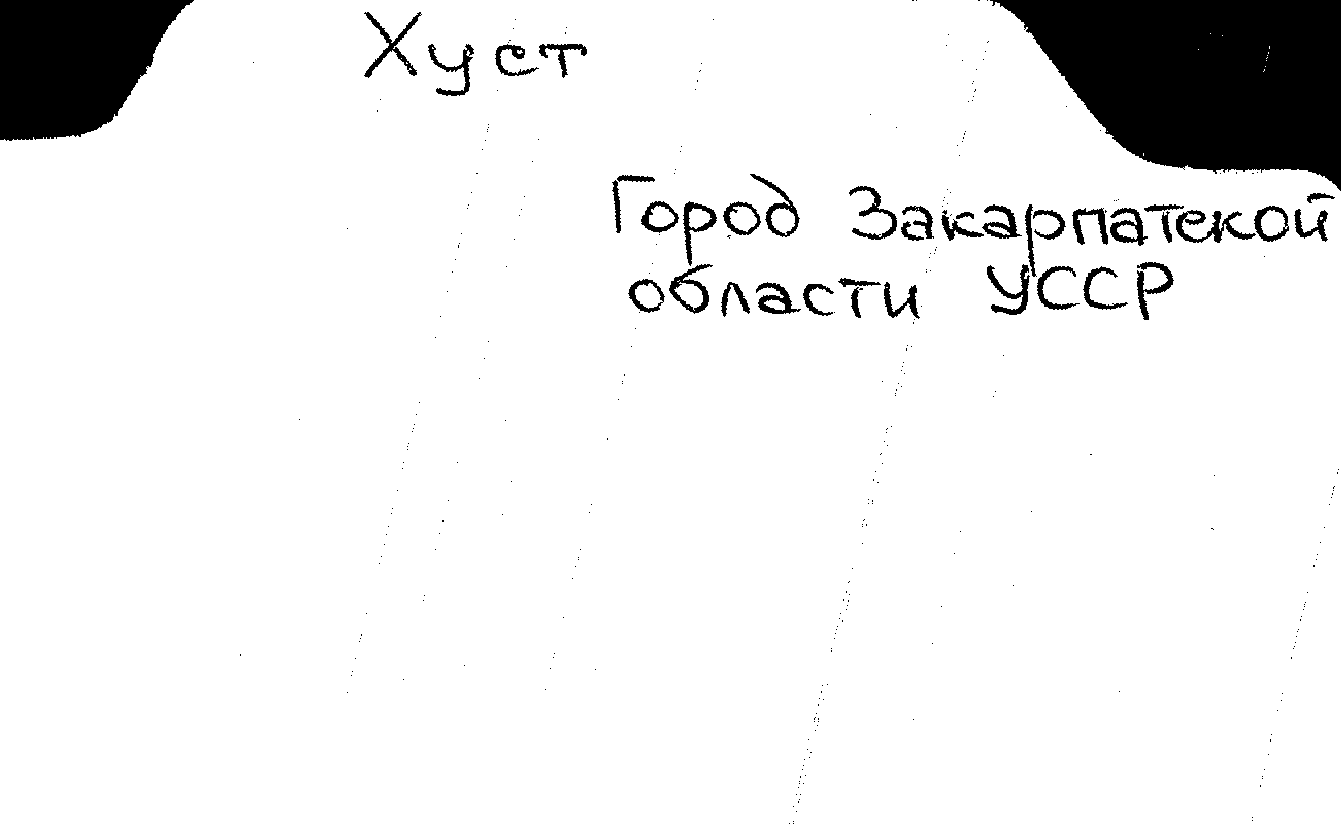 Хуст
Город Закарпатской
области УССР